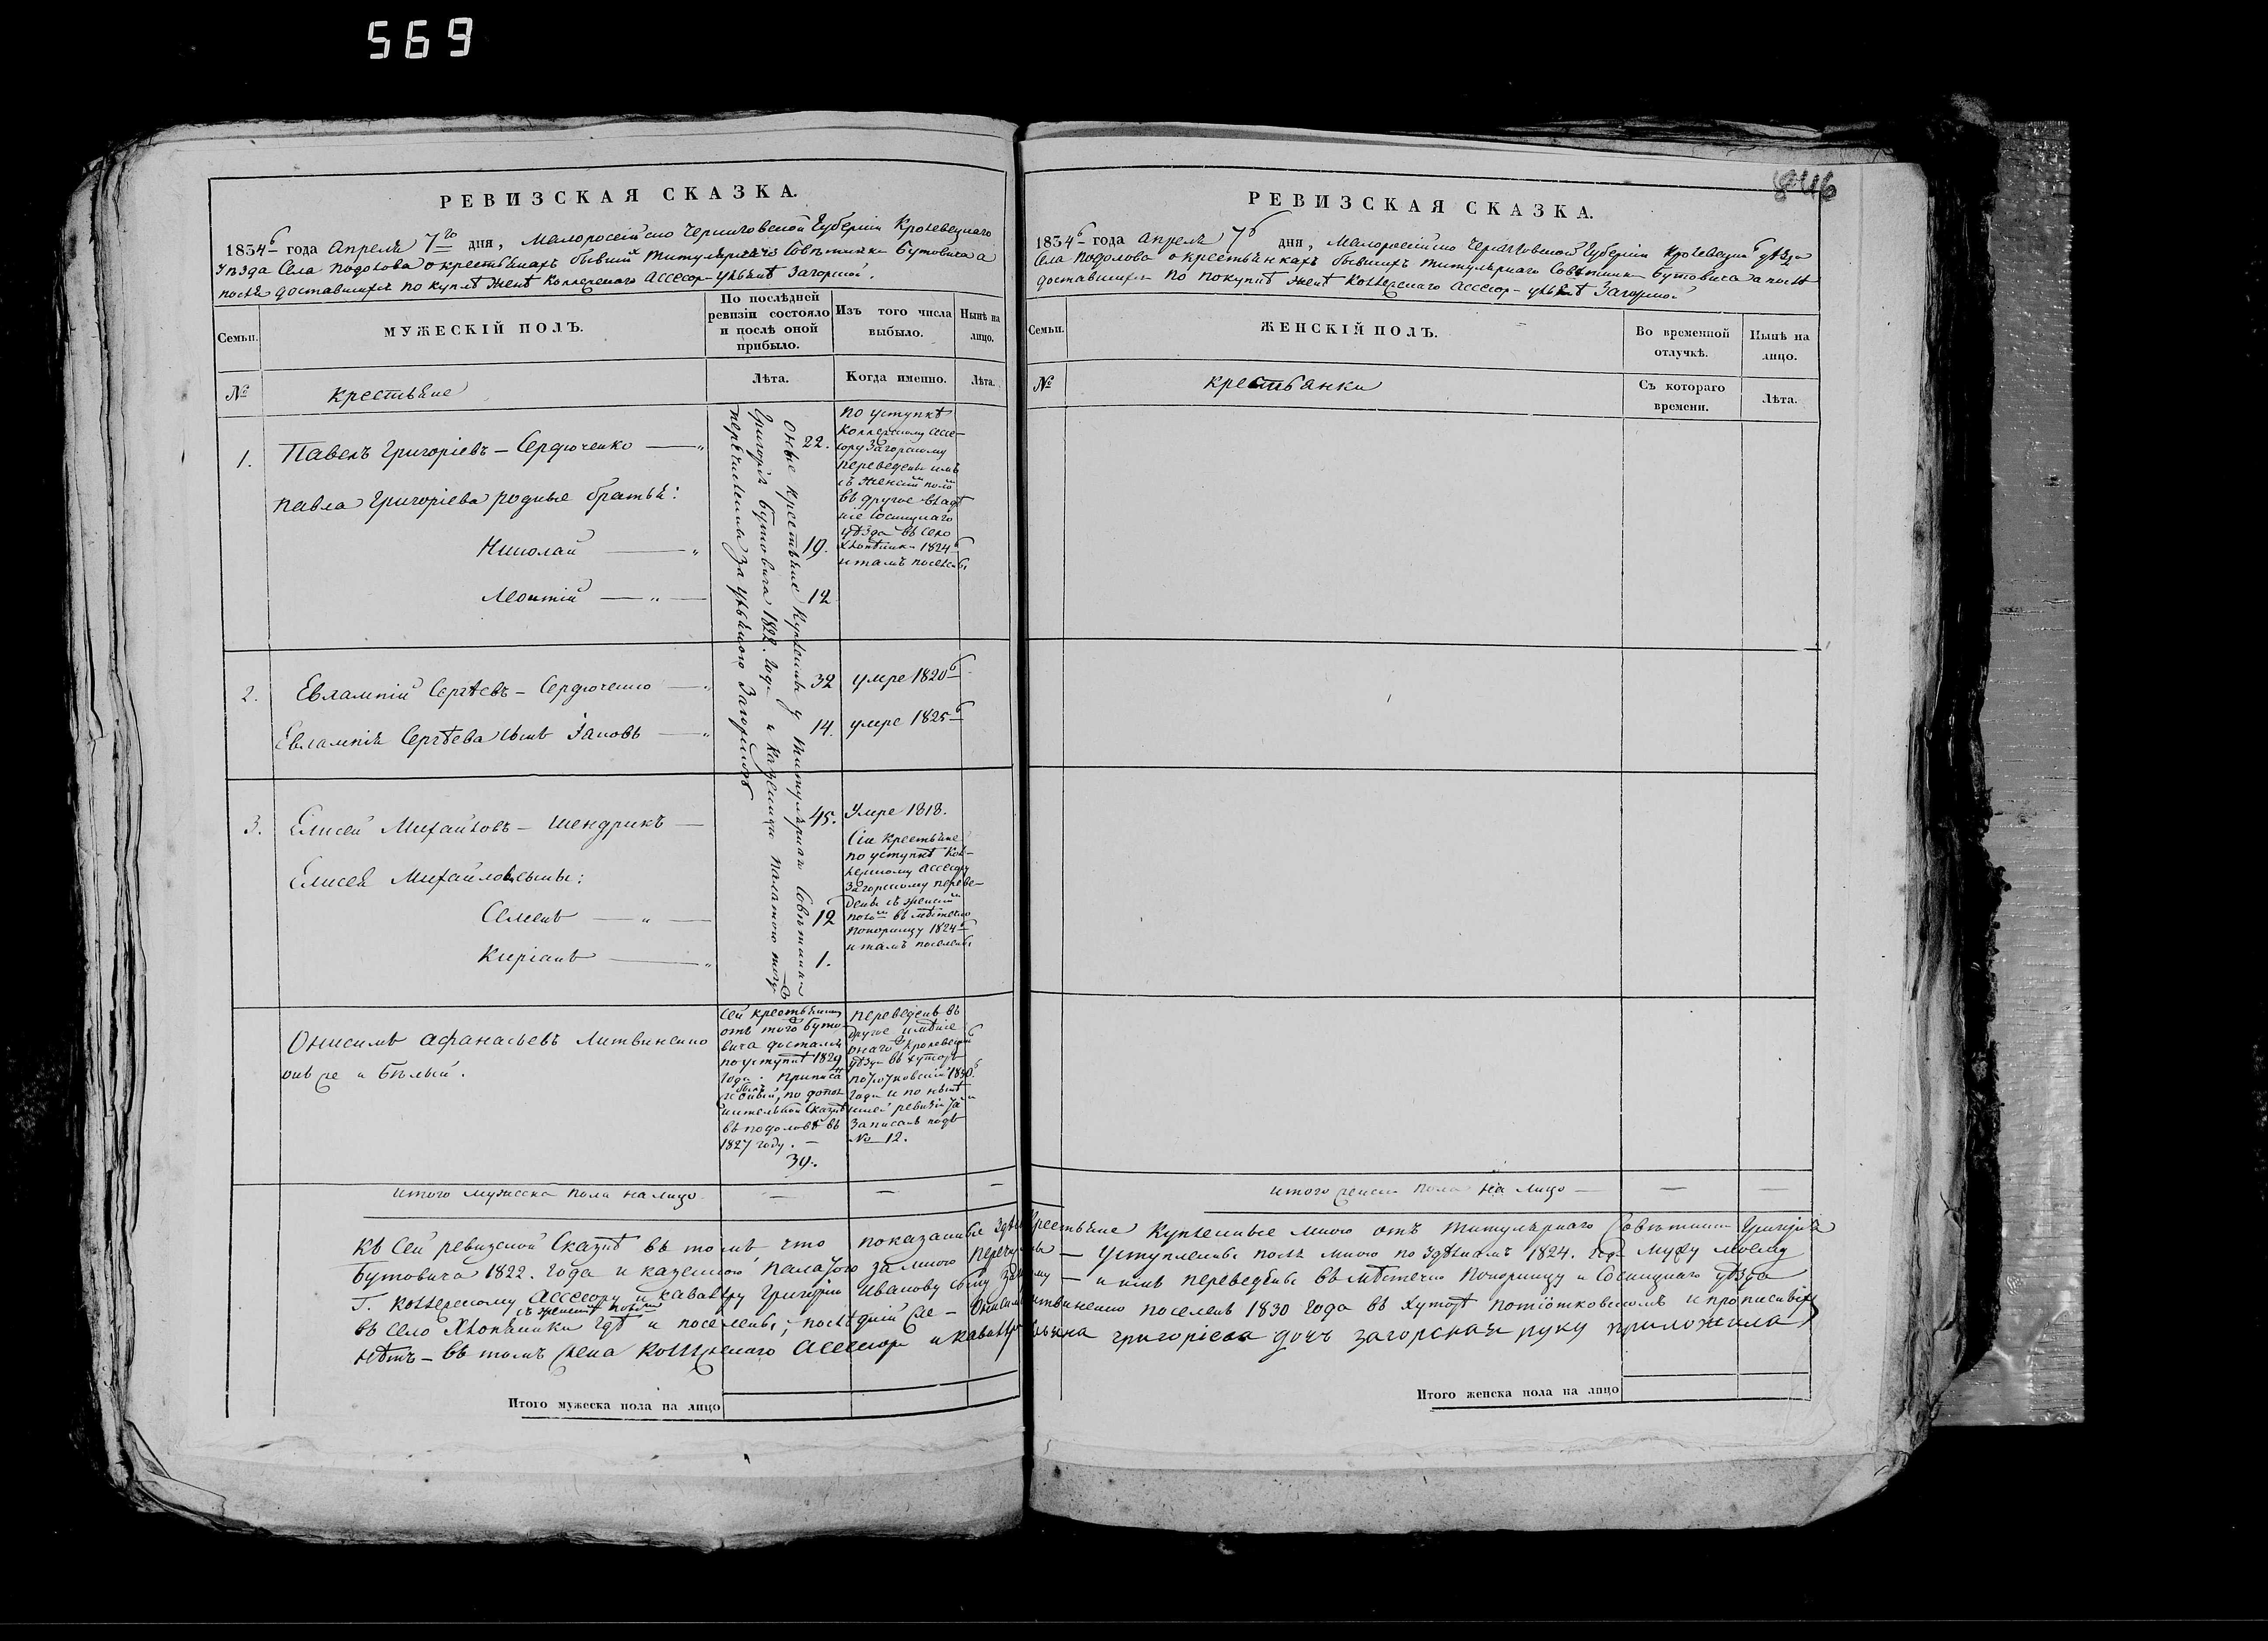 569
846
РЕВИЗСКАЯ СКАЗКА.
1834 года Апреля 7го дня, Малоросійско Черниговской Губерніи Кролевецкаго
уѣзда Села Подолова о крестьянахъ бывший титулярнаго Совѣтника Бутовича а
послѣ доставшихся по куплѣ женѣ Коллежскаго Ассесор Ульянѣ Загорской.
Семьи.
МУЖЕСКІЙ ПОЛЪ.
По послѣдней
ревизіи состояло
и послѣ оной
прибыло.
Изъ того числа
выбыло.
Нынѣ на
лицо.
№
крестьяне
Лѣта.
Когда именно.
Лѣта.
Оные крестьяне куплены у титулярнаго Совѣтника
Григорія Бутовича 1822. года и казенною палатою
перечислены за Ульяною Загорскою
1. Павелъ Григоріевъ – Сердюченко — 22.
По уступкѣ
Коллежскому Ассе-
сору Загорскому
переведены имъ
съ женскимъ поломъ
въ другое владѣ
ніе Сосницкаго
уѣзда въ село
Хлопяники 1824
и тамъ поселены
Павла Григоріева родные братья:
Николай — 19.
Леонтій — 12
2. Евлампій Сергѣевъ – Сердюченко — 32 умре 1820
Евлампія Сергѣева сынъ Іаковъ — 14. умре 1825
3. Елисей Михайловъ – Шендрикъ — 45. Умре 1818.
Сіи крестьяне
по уступкѣ Кол-
лежскому Ассесору
Загорскому переве-
дены съ женскимъ
поломъ въ мѣстечко
Понорницу 1824
и тамъ поселены
Елисея Михайлова сыны:
Семенъ — 12
Киріанъ — 1.
Онисимъ Афанасьевъ Литвиненко
онъ же и Бѣлый.
Сей крестьянинъ
отъ того Буто-
вича достался
по уступкѣ 1829
года. Приписа
былъ
по допол
нительной сказкѣ
въ Подоловѣ въ
1827 году. –
39.
переведенъ въ
другое имѣніе
онаго Кролевецкаго
уѣзда въ хуторъ
1830
года и по нынѣ
шней ревизіи
записанъ подъ
№ 12.
итого мужеска пола на лицо — — —
РЕВИЗСКАЯ СКАЗКА.
1834 года Апреля 7 дня, Малоросійско Черниговской Губерніи Кролевецка уѣзда
Села Подолова о крестьянкахъ бывшихъ титулярнаго Совѣтника Бутовича а послѣ
доставшихся по покупкѣ женѣ Коллежскаго Ассесор – Ульянѣ Загорской
Семьи.
ЖЕНСКІЙ ПОЛЪ.
Во временной
отлучкѣ.
Нынѣ на
лицо.
№
крестьянки
Съ котораго
времени.
Лѣта.
итого женска пола на лицо — — —
Къ сей ревизской сказкѣ въ томъ что показанные здѣсь крестьяне купленные мною отъ титулярнаго Совѣтника Григорія
Бутовича 1822. года и казенною палатою за мною перечислены – уступлены послѣ мною по здѣлкамъ 1824. года мужу моему
Г. Коллежскому Ассесору и кавалеру Григорію Иванову сыну Загорскому – и имъ переведены въ мѣстечко Понорницу и Сосницкаго уѣзда
съ женскимъ поломъ
въ село Хлопяники гдѣ и поселены, послѣдній же – Онисимъ Литвиненко поселенъ 1830 года въ хуторѣ Потіотковскомъ и прописныхъ
нѣтъ – въ томъ жена Коллежскаго Ассесора и кавалера Ульяна Григоріева дочъ Загорская руку приложила
Итого мужеска пола на лицо
Итого женска пола на лицо